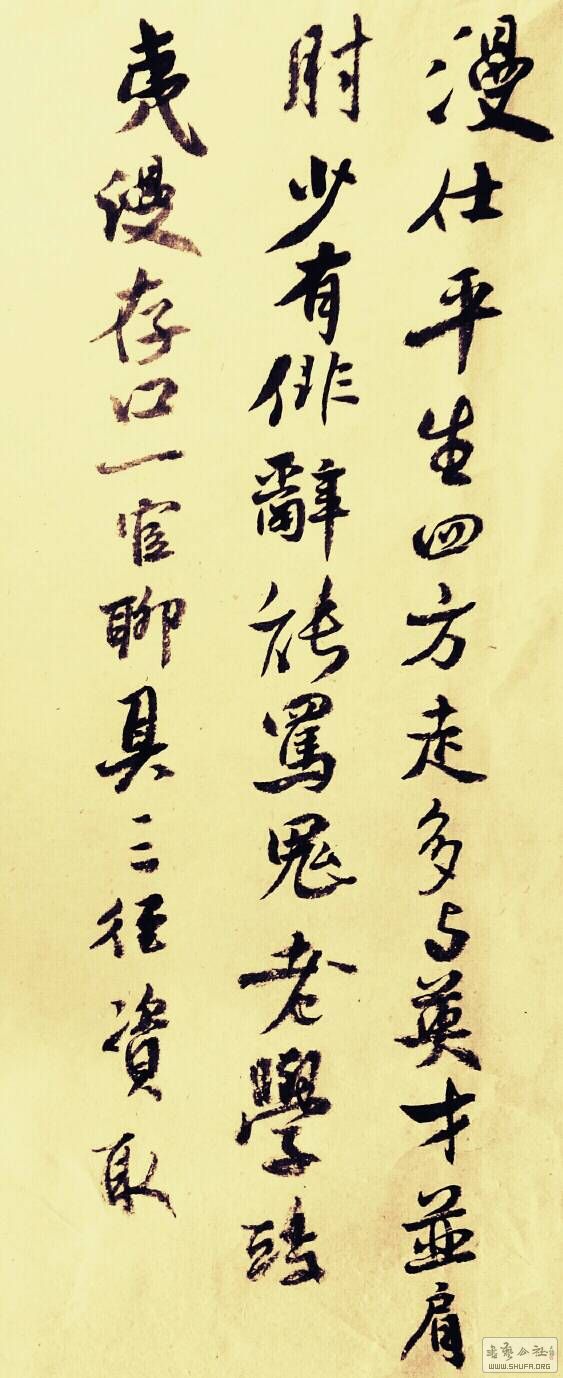 漫仕平生四方走多与英才並肩
肘少有俳辭能罵鬼老學
夷漫存口一官聊具三徑資取
書藝公社
WWW.SHUFA.ORG